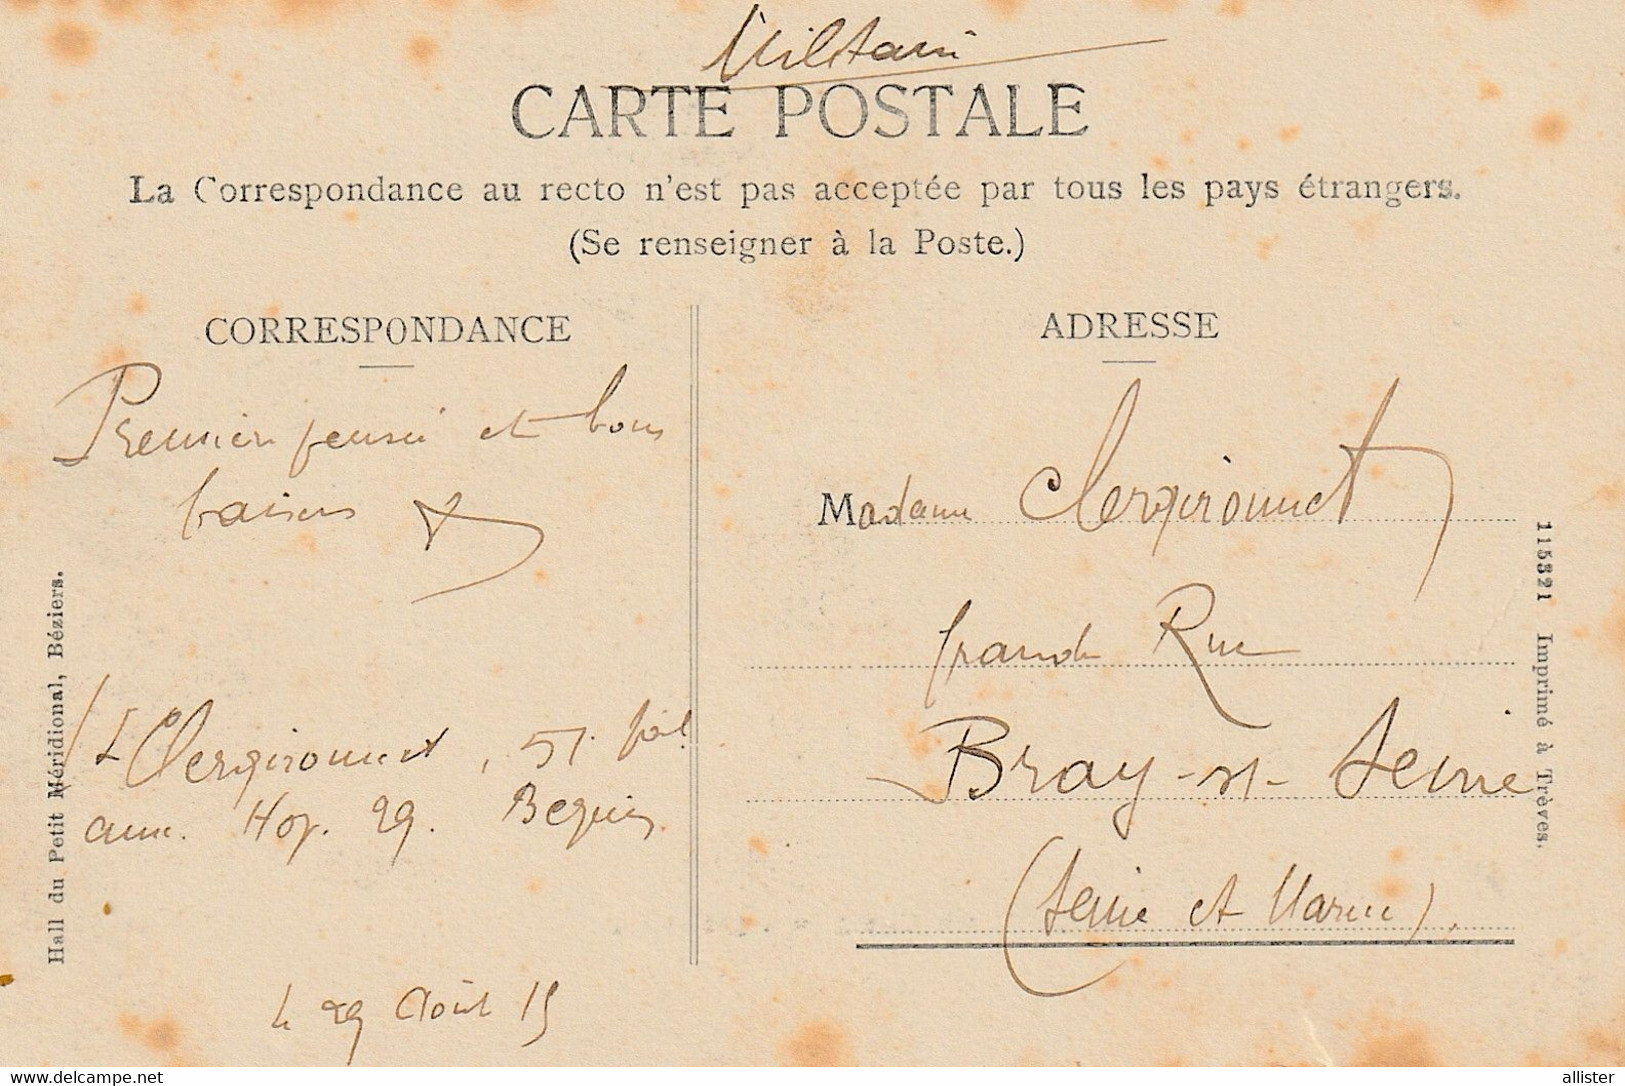 Militaire
CARTE POSTALE
La Correspondance au recto n'est pas acceptée par tous les pays étrangers.
(Se renseigner à la Poste.)
CORRESPONDANCE
Premier pensée et bons
baisers
Clergironnet, 51
aux. Hop. 29. Beziers
le 29 Août 15
Hall du Petit Méridional, Béziers.
ADRESSE
Madame Clergironnet
grande Rue
Bray-sr-Seine
(Seine et Marne).
115321 Imprimé à Trèves.
delcampe.net
allister